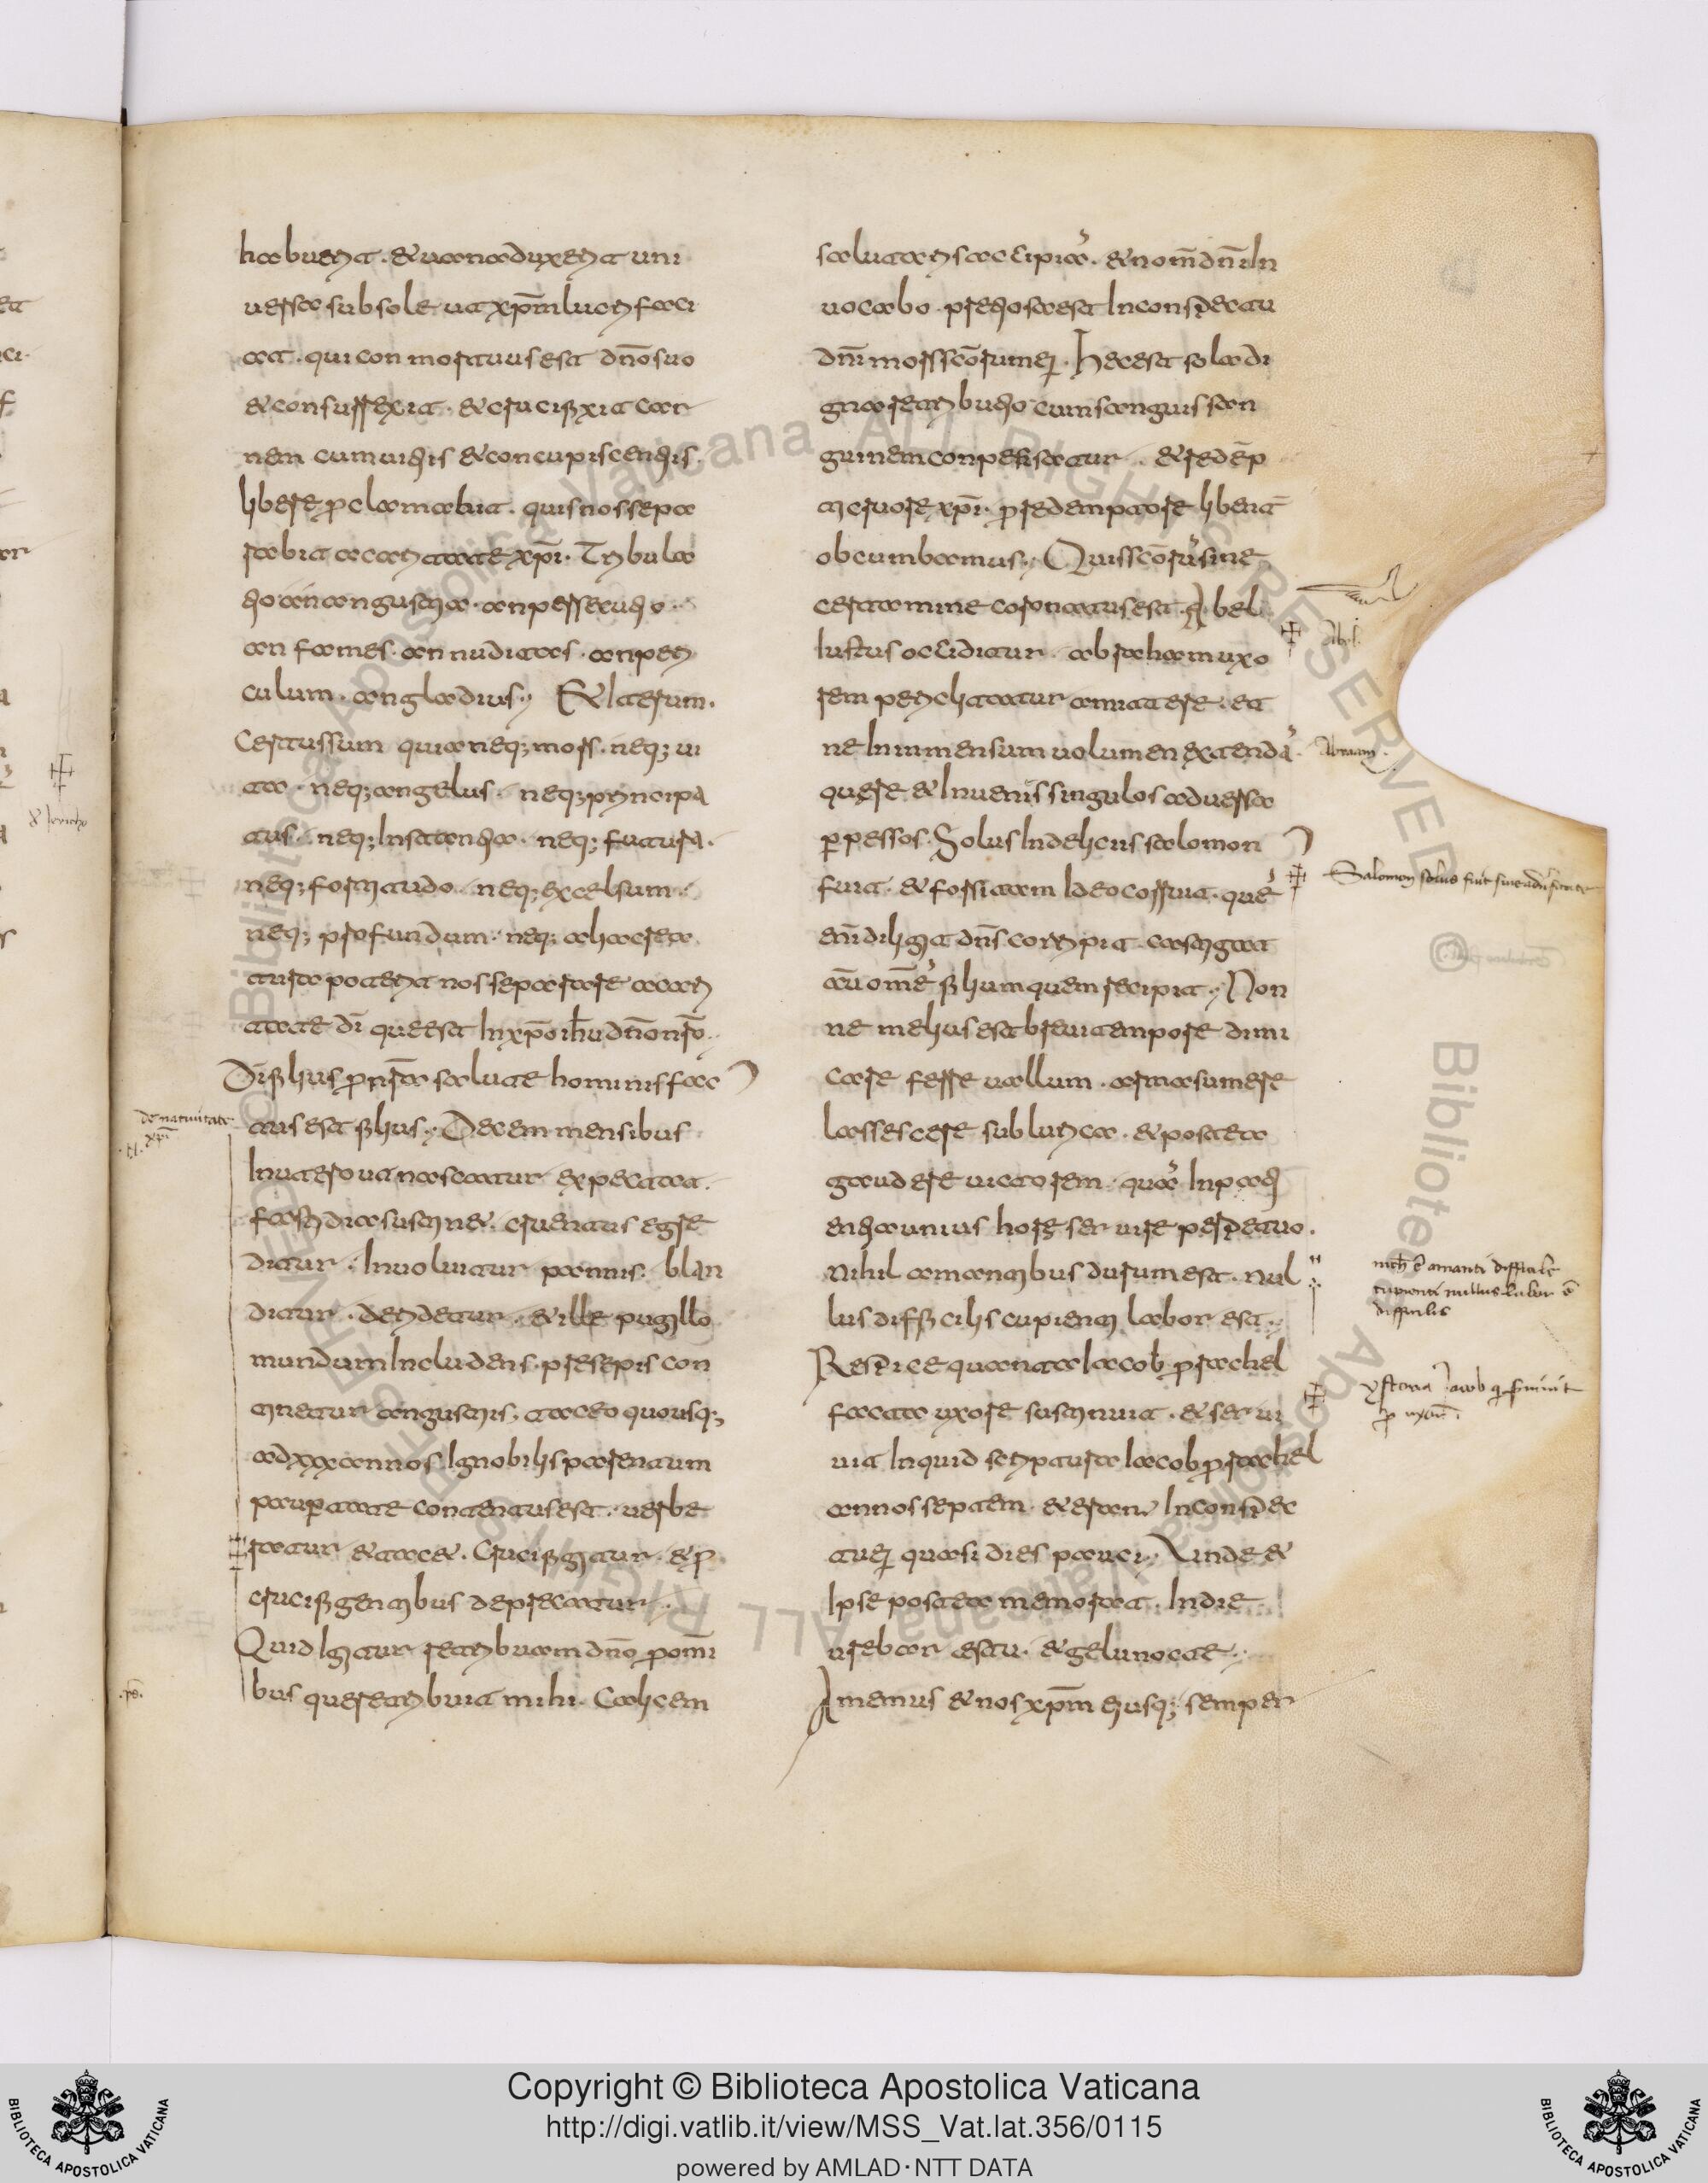 habuerit. et uana duxerit uni
uersa sub sole ut xpm lucri faci
at. qui conmortuus est dno suo
et consurrexit. et crucifixit car
nem cum uitiis et concupiscentiis.
libere proclamabit. quis nos sepa
rabit a caritate xpi. Tribula
tio an angustia. an persecutio.
an fames. an nuditas. an peri
culum. an gladius. Et iterum.
Certus sum quia neq; mors. neq; ui
ta. neq; angelus. neq; principa
tus. neq; Instantia. neq; futura.
neq; fortitudo. neq; excelsum.
neq; profundum. neq; alia crea
tura poterit nos separare a cari
tate di que est In xpo ihu dno nro.
Di filius pro nra salute hominis fac
tus est filius. Decem mensibus
In utero ut nascatur expectat.
fastidia sustinet. cruentus egre
ditur. Inuoluitur pannis. blan
ditur. deridetur. et ille pugillo
mundum Includens. presepis con
tinetur angustiis. taceo quousq;
ad xxx annos Ignobilis parentum
paupertate contentus est. uerbe
ratur et tacet. Crucifigitur. et p
crucifigentibus deprecatur.
Quid Igitur retribuam dno pro omi
bus que retribuit mihi. Calicem
salutaris accipia. et nom dni In
uocabo. pretiosa est In conspectu
dni mors scorum ei. Hec est sola di
gna retributio cum sanguis san
guinem conpensatur. et redep
ti cruore xpi. pro redemptore libent
obcumbamus. Quis scorum sine
certamine coronatus est. Abel
Iustus occiditur. abraham uxo
rem periclitatur amittere. et
ne In inmensum uolumen extenda.
quere et Inuenis singulos aduersa
perpessos. Solus In deliciis salomon
fuit. et forsitam Ideo corruit. que
eni diligit dns corripit. castigat
au ome filium quem recipit. Non
ne melius est breui tempore dimi
care ferre uallum. arma sumere
lassescere sub lurica. et postea
gaudere uictorem. qua Inpati
entia unius hore seruire perpetuo.
Nihil amantibus durum est. nul
lus difficilis cupienti labor est.
Respice quanta Iacob pro rachel
pacta uxore sustinuit. et serui
uit Inquid scriptura Iacob pro rachel
annos septem. et erant In conspec
tu ei quasi dies pauci. Unde et
Ipse postea memorat. In die
urebar estu. et gelu nocte.
Amemus et nos xpm eiusq; semper
de natiuitate
xpi
Abel.
Abraam.
Salomon solus fuit sine aduersitate
nich e amanti difficile
cupienti nullus labor e
difficilis
ystoria Iacob q seruiuit
p uxore
& Iericho
Copyright © Biblioteca Apostolica Vaticana
http://digi.vatlib.it/view/MSS_Vat.lat.356/0115
powered by AMLAD·NTT DATA
BIBLIOTECA APOSTOLICA VATICANA
BIBLIOTECA APOSTOLICA VATICANA